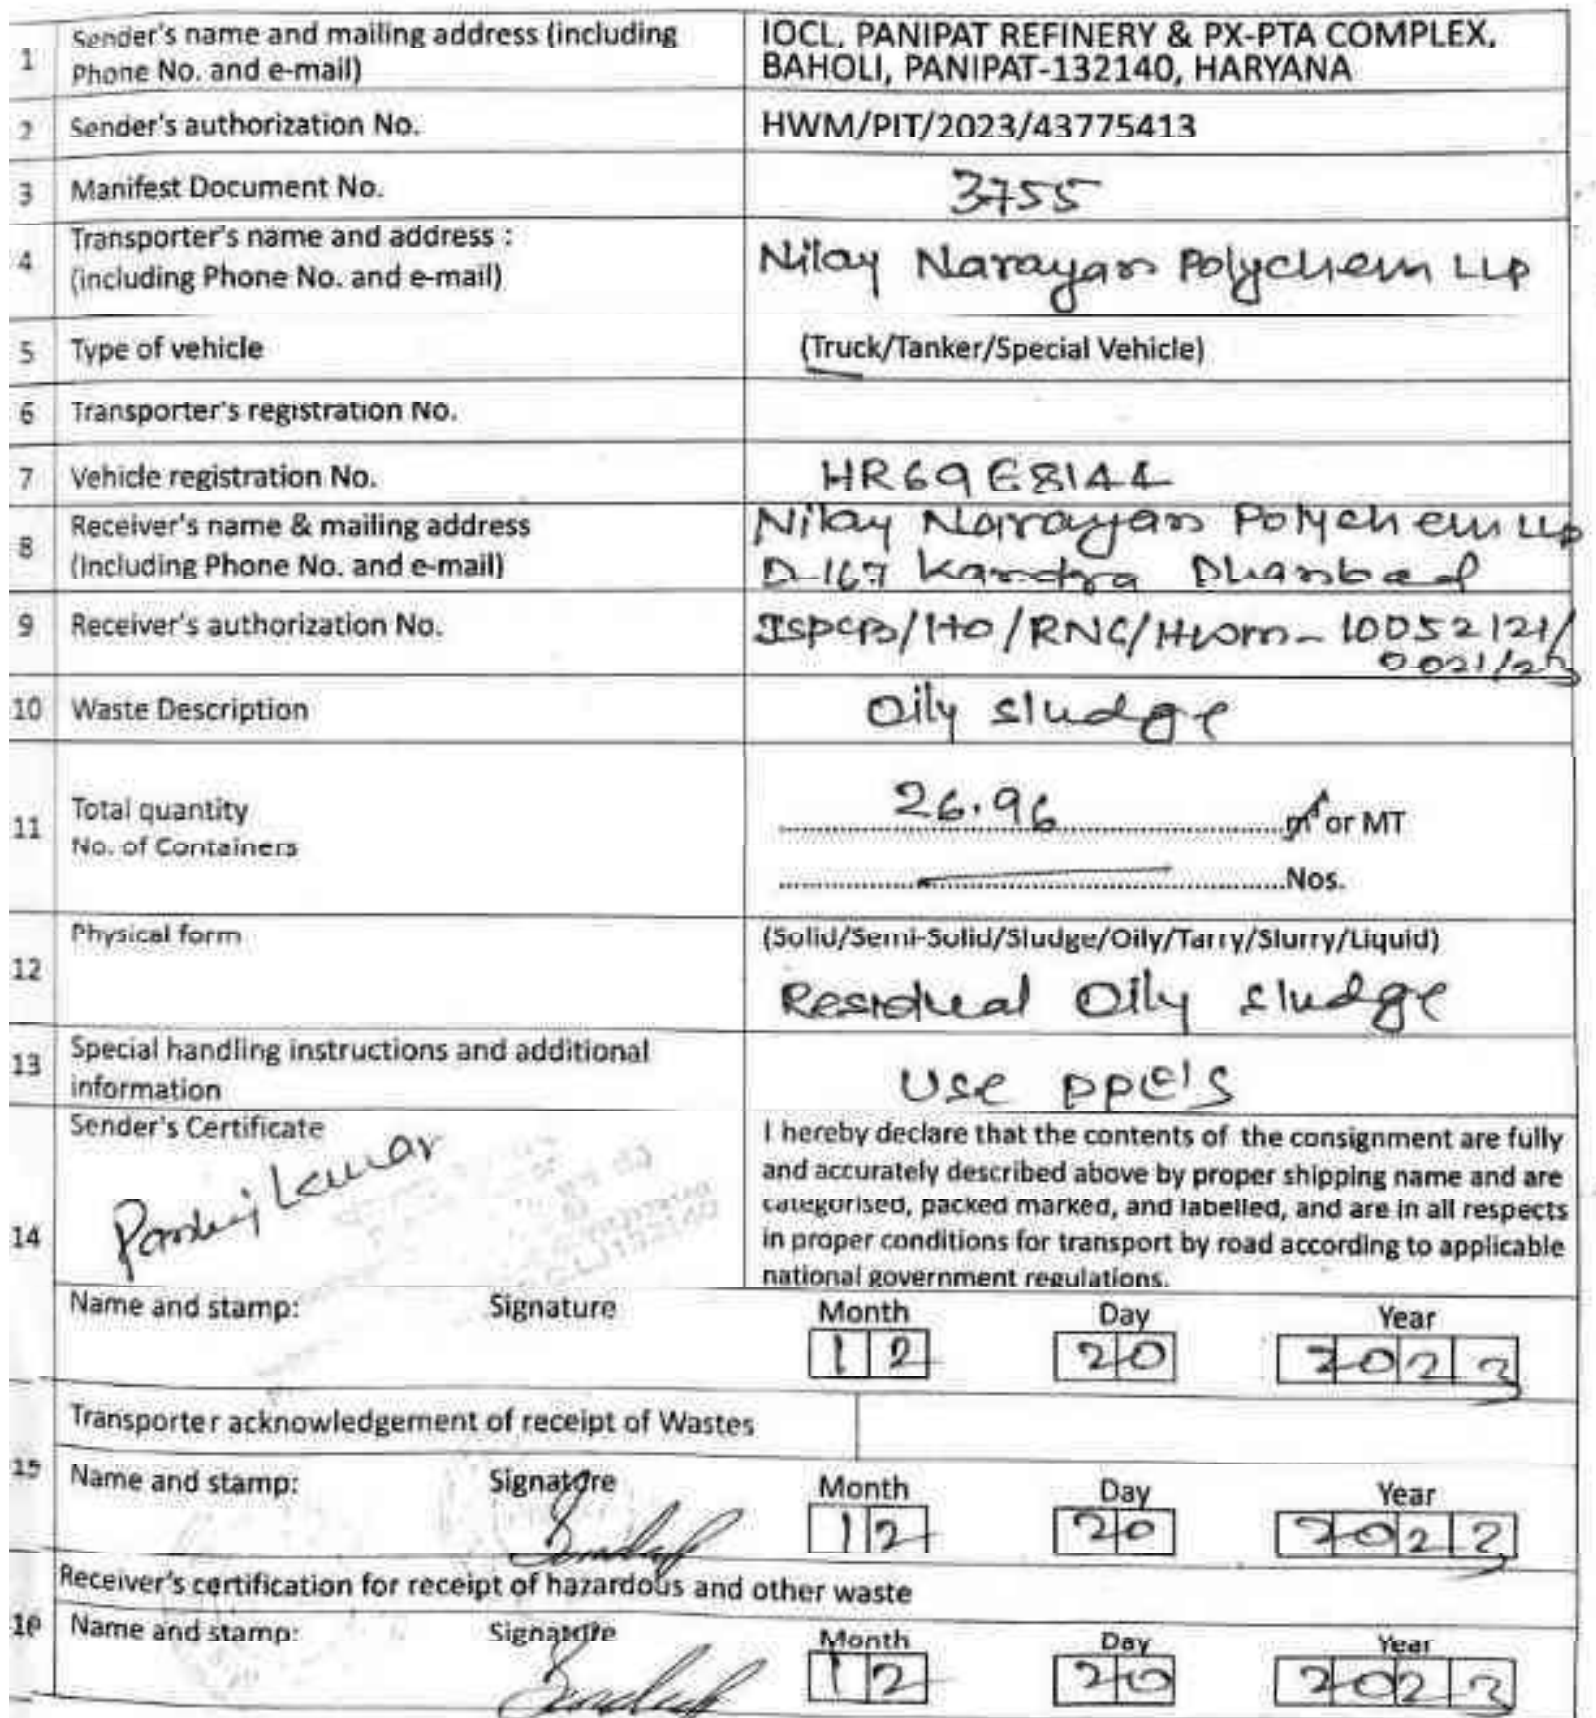 1 Sender's name and mailing address (including Phone No. and e-mail) IOCL, PANIPAT REFINERY & PX-PTA COMPLEX, BAHOLI, PANIPAT-132140, HARYANA
2 Sender's authorization No. HWM/PIT/2023/43775413
3 Manifest Document No. 3755
4 Transporter's name and address : (including Phone No. and e-mail) Nilay Narayan Polychem LLP
5 Type of vehicle (Truck/Tanker/Special Vehicle)
6 Transporter's registration No.
7 Vehicle registration No. HR69E8144
8 Receiver's name & mailing address (Including Phone No. and e-mail) Nilay Narayan Polychem LLP D-167 Kandra Dhanbad
9 Receiver's authorization No. JSPCB/HO/RNC/HWM-10052121/ 2021/23
10 Waste Description Oily sludge
11 Total quantity 26.96 m³ or MT
No. of Containers Nos.
12 Physical form (Solid/Semi-Solid/Sludge/Oily/Tarry/Slurry/Liquid)
Residual Oily sludge
13 Special handling instructions and additional information Use PPE's
14 Sender's Certificate
Pankaj Kumar
I hereby declare that the contents of the consignment are fully
and accurately described above by proper shipping name and are
categorised, packed marked, and labelled, and are in all respects
in proper conditions for transport by road according to applicable
national government regulations.
Name and stamp: Signature Month Day Year
12 20 2023
15 Transporter acknowledgement of receipt of Wastes
Name and stamp: Signature Month Day Year
12 20 2023
16 Receiver's certification for receipt of hazardous and other waste
Name and stamp: Signature Month Day Year
12 20 2023